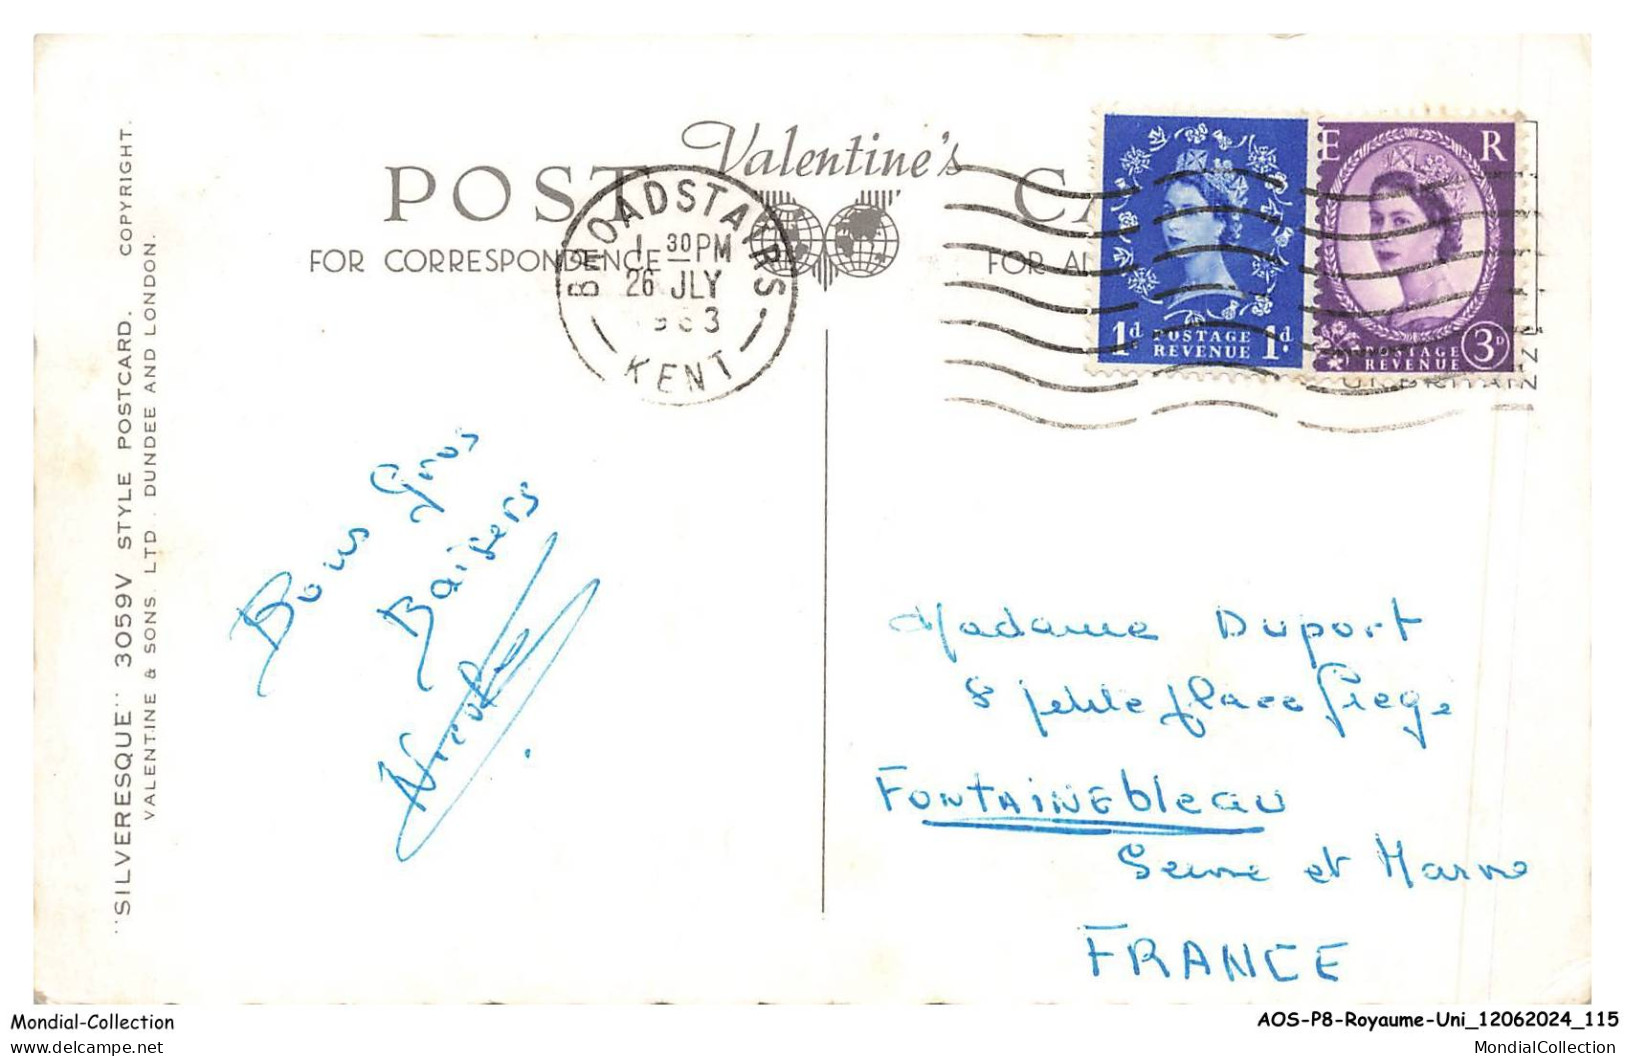 "SILVERESQUE" 3059V STYLE POSTCARD. COPYRIGHT.
VALENTINE & SONS. LTD. DUNDEE AND LONDON.
POST CA
Valentine's
FOR CORRESPONDENCE
FOR A
BROADSTAIRS
1 30 PM
26 JLY
1963
KENT
1d POSTAGE 1d.
REVENUE
E R
POSTAGE
REVENUE 3D
Bons Gros
Baisers
Nicole
Madame Duport
8 petite place
FONTAINEbleau
Seine et Marne
FRANCE
Mondial-Collection
delcampe.net
AOS-P8-Royaume-Uni_12062024_115
MondialCollection